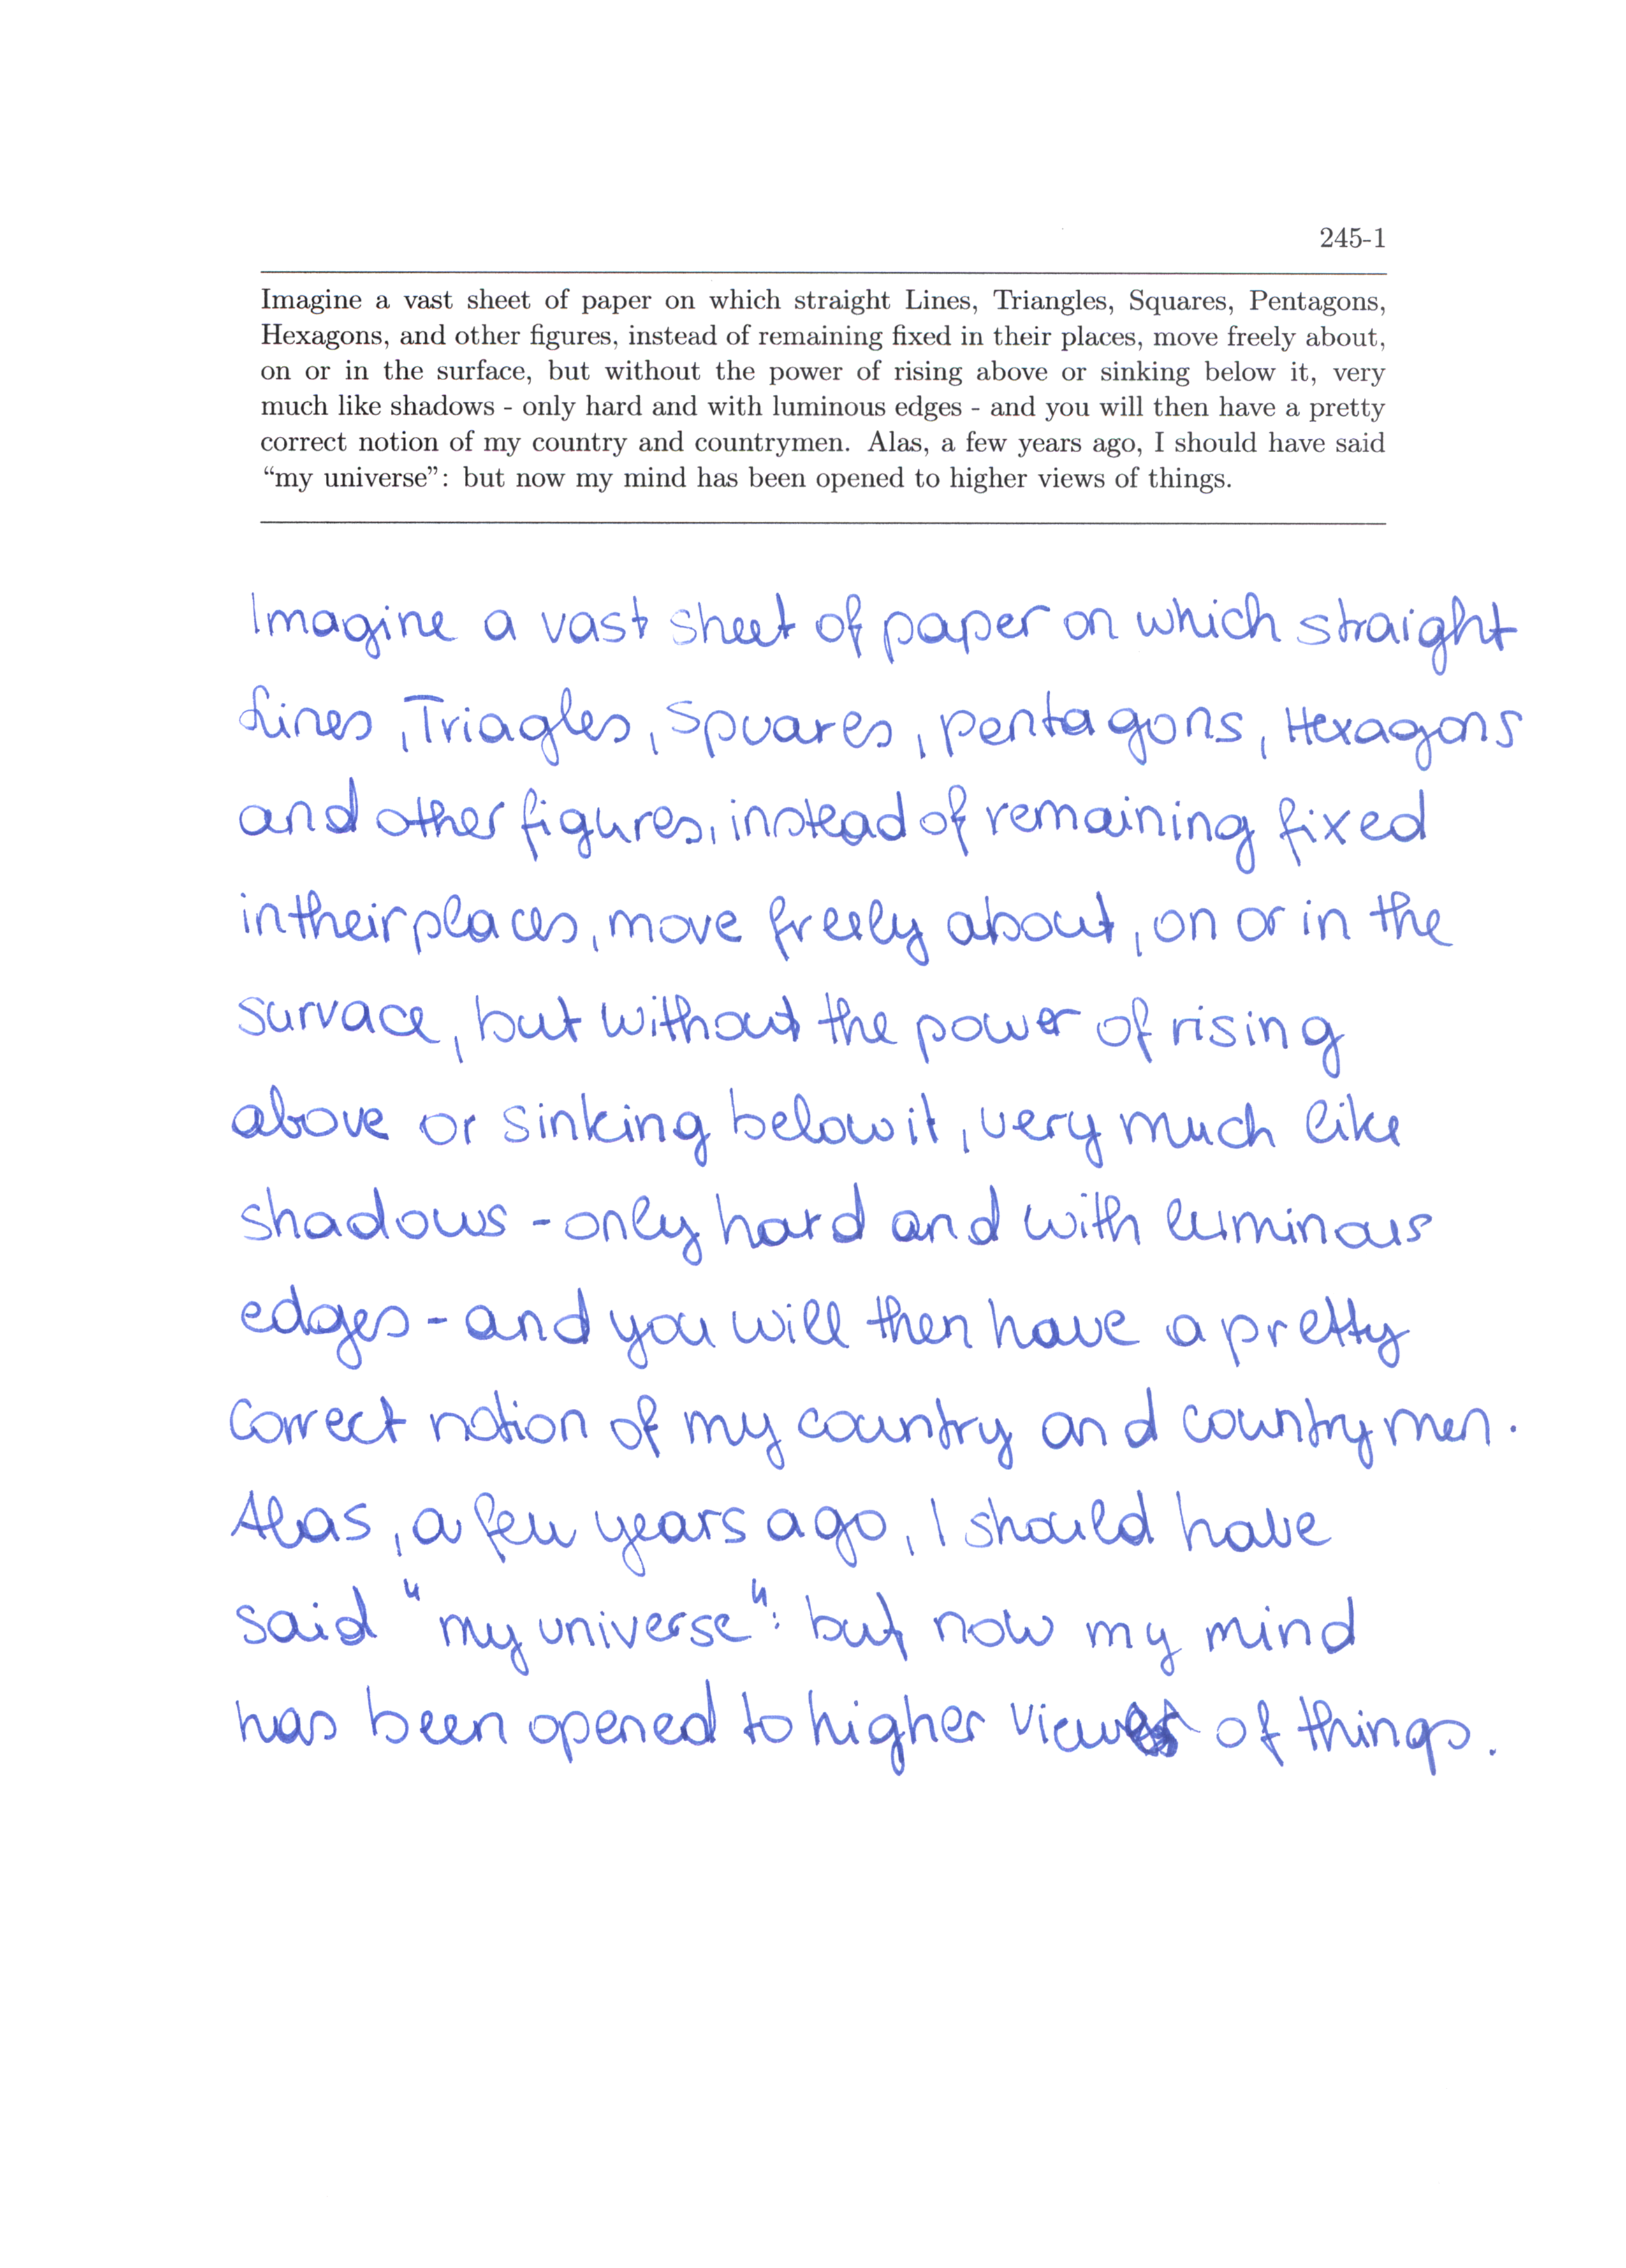 245-1
Imagine a vast sheet of paper on which straight Lines, Triangles, Squares, Pentagons,
Hexagons, and other figures, instead of remaining fixed in their places, move freely about,
on or in the surface, but without the power of rising above or sinking below it, very
much like shadows - only hard and with luminous edges - and you will then have a pretty
correct notion of my country and countrymen. Alas, a few years ago, I should have said
“my universe”: but now my mind has been opened to higher views of things.
Imagine a vast sheet of paper on which straight
Lines, Triagles, Spuares, pentagons, Hexagons
and other figures, instead of remaining fixed
in their places, move freely about, on or in the
survace, but without the power of rising
above or sinking below it, very much like
shadows - only hard and with luminous
edges - and you will then have a pretty
correct notion of my country and countrymen.
Alas, a few years ago, I should have
said "my universe": but now my mind
has been opened to higher views of things.